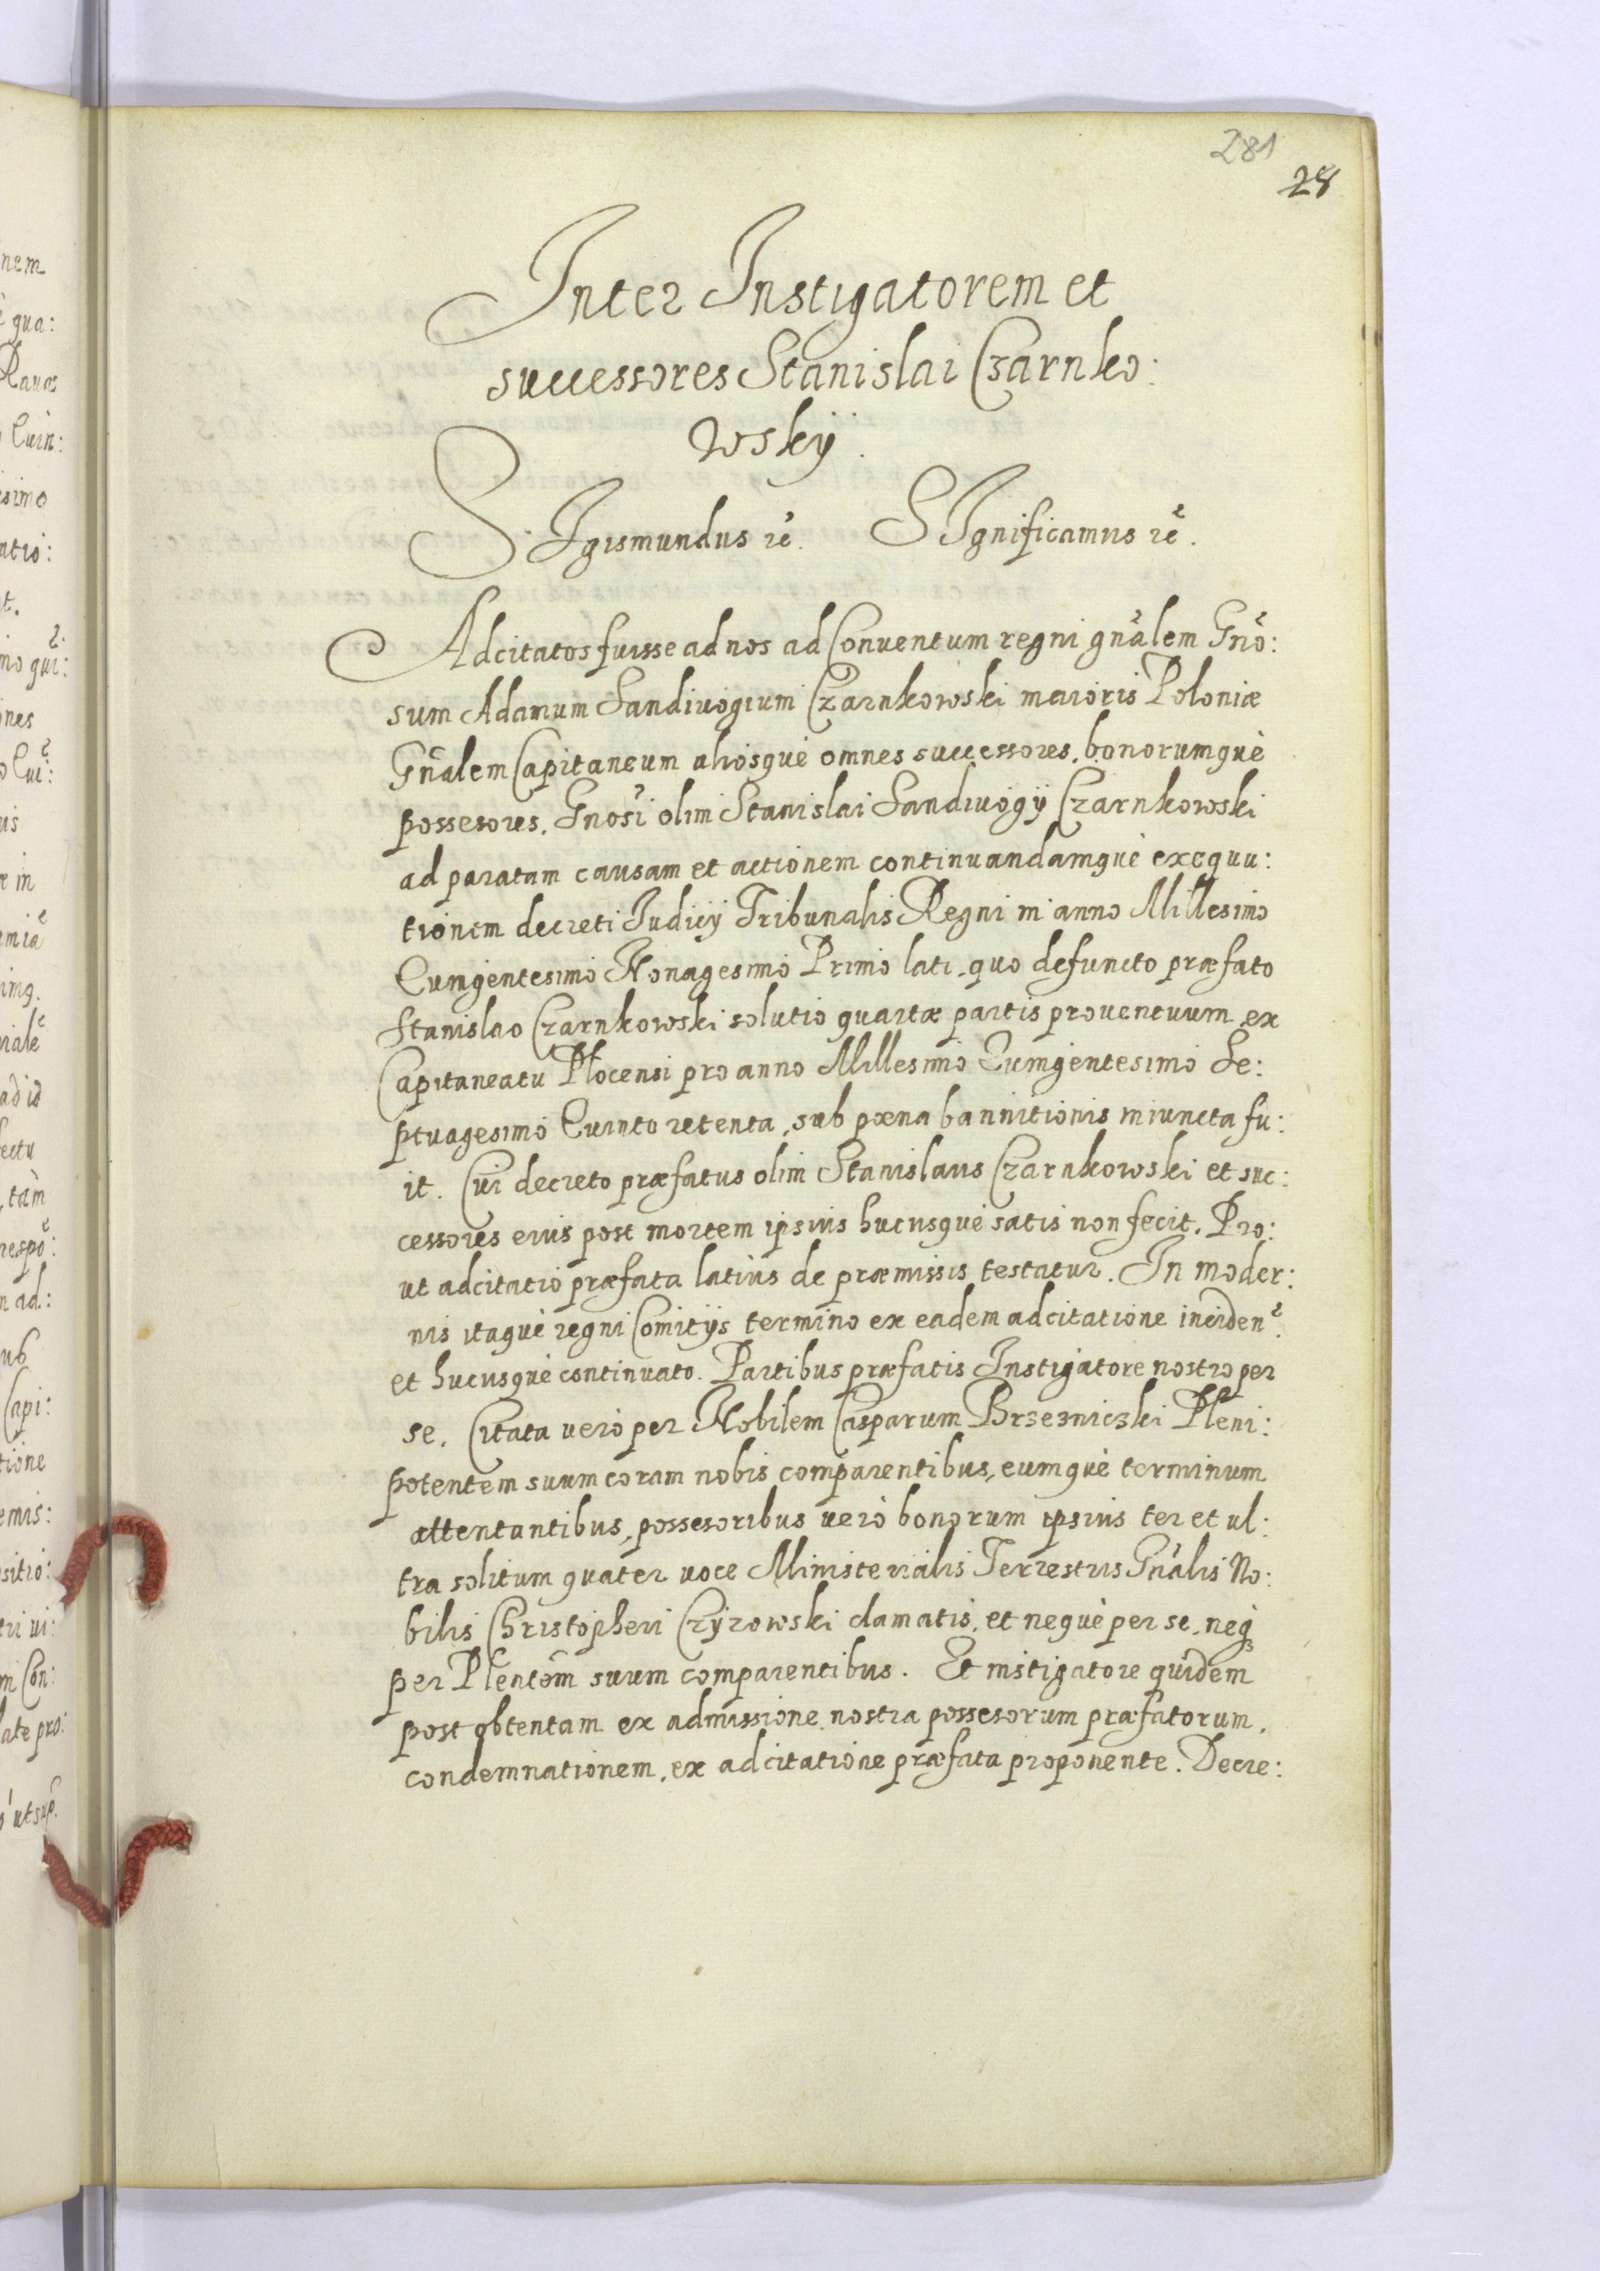 281
28
Inter Instigatorem et
successores Stanislai Czarnko:
wskÿ.
SIgismundus rc̃. SIgnificamus rc̃.
Adcitatos fuisse ad nos ad Conuentum regni gñalem Gño:
sum Adamum Sandiuogium Czarnkowski maioris Poloniæ
Gñalem Capitaneum aliosquè omnes successores, bonorumquè
possesores, Gnosi olim Stanislai Sandiuogÿ Czarnkowski
ad paratam causam et actionem continuandamquè exequu:
tionem decreti Iudicÿ Tribunalis Regni in anno Millesimo
Quingentesimo Nonagesimo Primo lati, quo defuncto præfato
Stanislao Czarnkowski solutio quartæ partis prouentuum ex
Capitaneatu Plocensi pro anno Millesimo Quingentesimo Se:
ptuagesimo Quinto retenta, sub pœna bannitionis iniuncta fu:
it. Cui decreto præfatus olim Stanislaus Czarnkowski et suc:
cessores eius post mortem ipsius hucusquè satis non fecit. Pro:
ut adcitatio præfata latius de præmissis testatur. In moder:
nis itaquè regni Comitÿs termino ex eadem adcitatione incideñ.
et hucusquè continuato. Partibus præfatis Instigatore nostro per
se. Citata uerò per Nobilem Casparum Brzezniczki Pleni:
potentem suum coram nobis comparentibus, eumquè terminum
attentantibus, possesoribus uerò bonorum ipsius ter et ul:
tra solitum quater uoce Ministerialis Terrestris Gñalis No:
bilis Christopheri Czyzowski clamatis, et nequè per se, neq̧
per Plentẽm suum comparentibus. Et instigatore quidem
post obtentam ex admissione nostra possesorum præfatorum,
condemnationem, ex adcitatione præfata proponente. Decre: